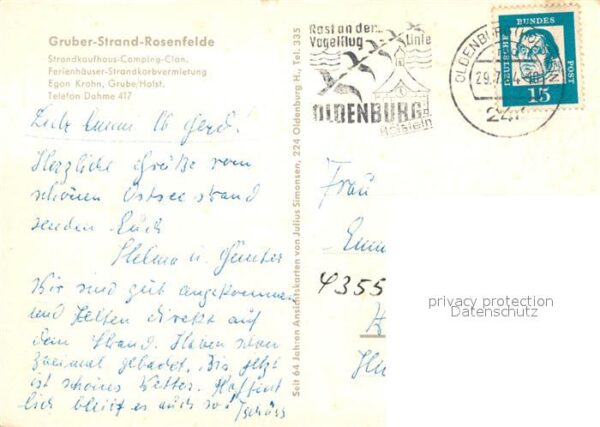 Gruber-Strand-Rosenfelde
Strandkaufhaus-Camping-Clan.
Ferienhäuser-Strandkorbvermietung
Egon Krohn, Grube/Holst.
Telefon Dahme 417
Herzliche Grüße vom
schönen Ostseestrand
senden Euch
Helma u. Günter
Wir sind gut angekommen
und zelten direkt auf
dem Strand. Haben schon
zweimal gebadet. Bis jetzt
ist schönes Wetter. Hoffent
lich bleibt es auch so! Tschüss
Seit 64 Jahren Ansichtskarten von Julius Simonsen, 224 Oldenburg H., Tel. 335
Rast an der...
Vogelfluglinie
OLDENBURG i.
Holstein
OLDENBURG
29.7.
DEUTSCHE BUNDESPOST
15
Frau
4355
privacy protection
Datenschutz